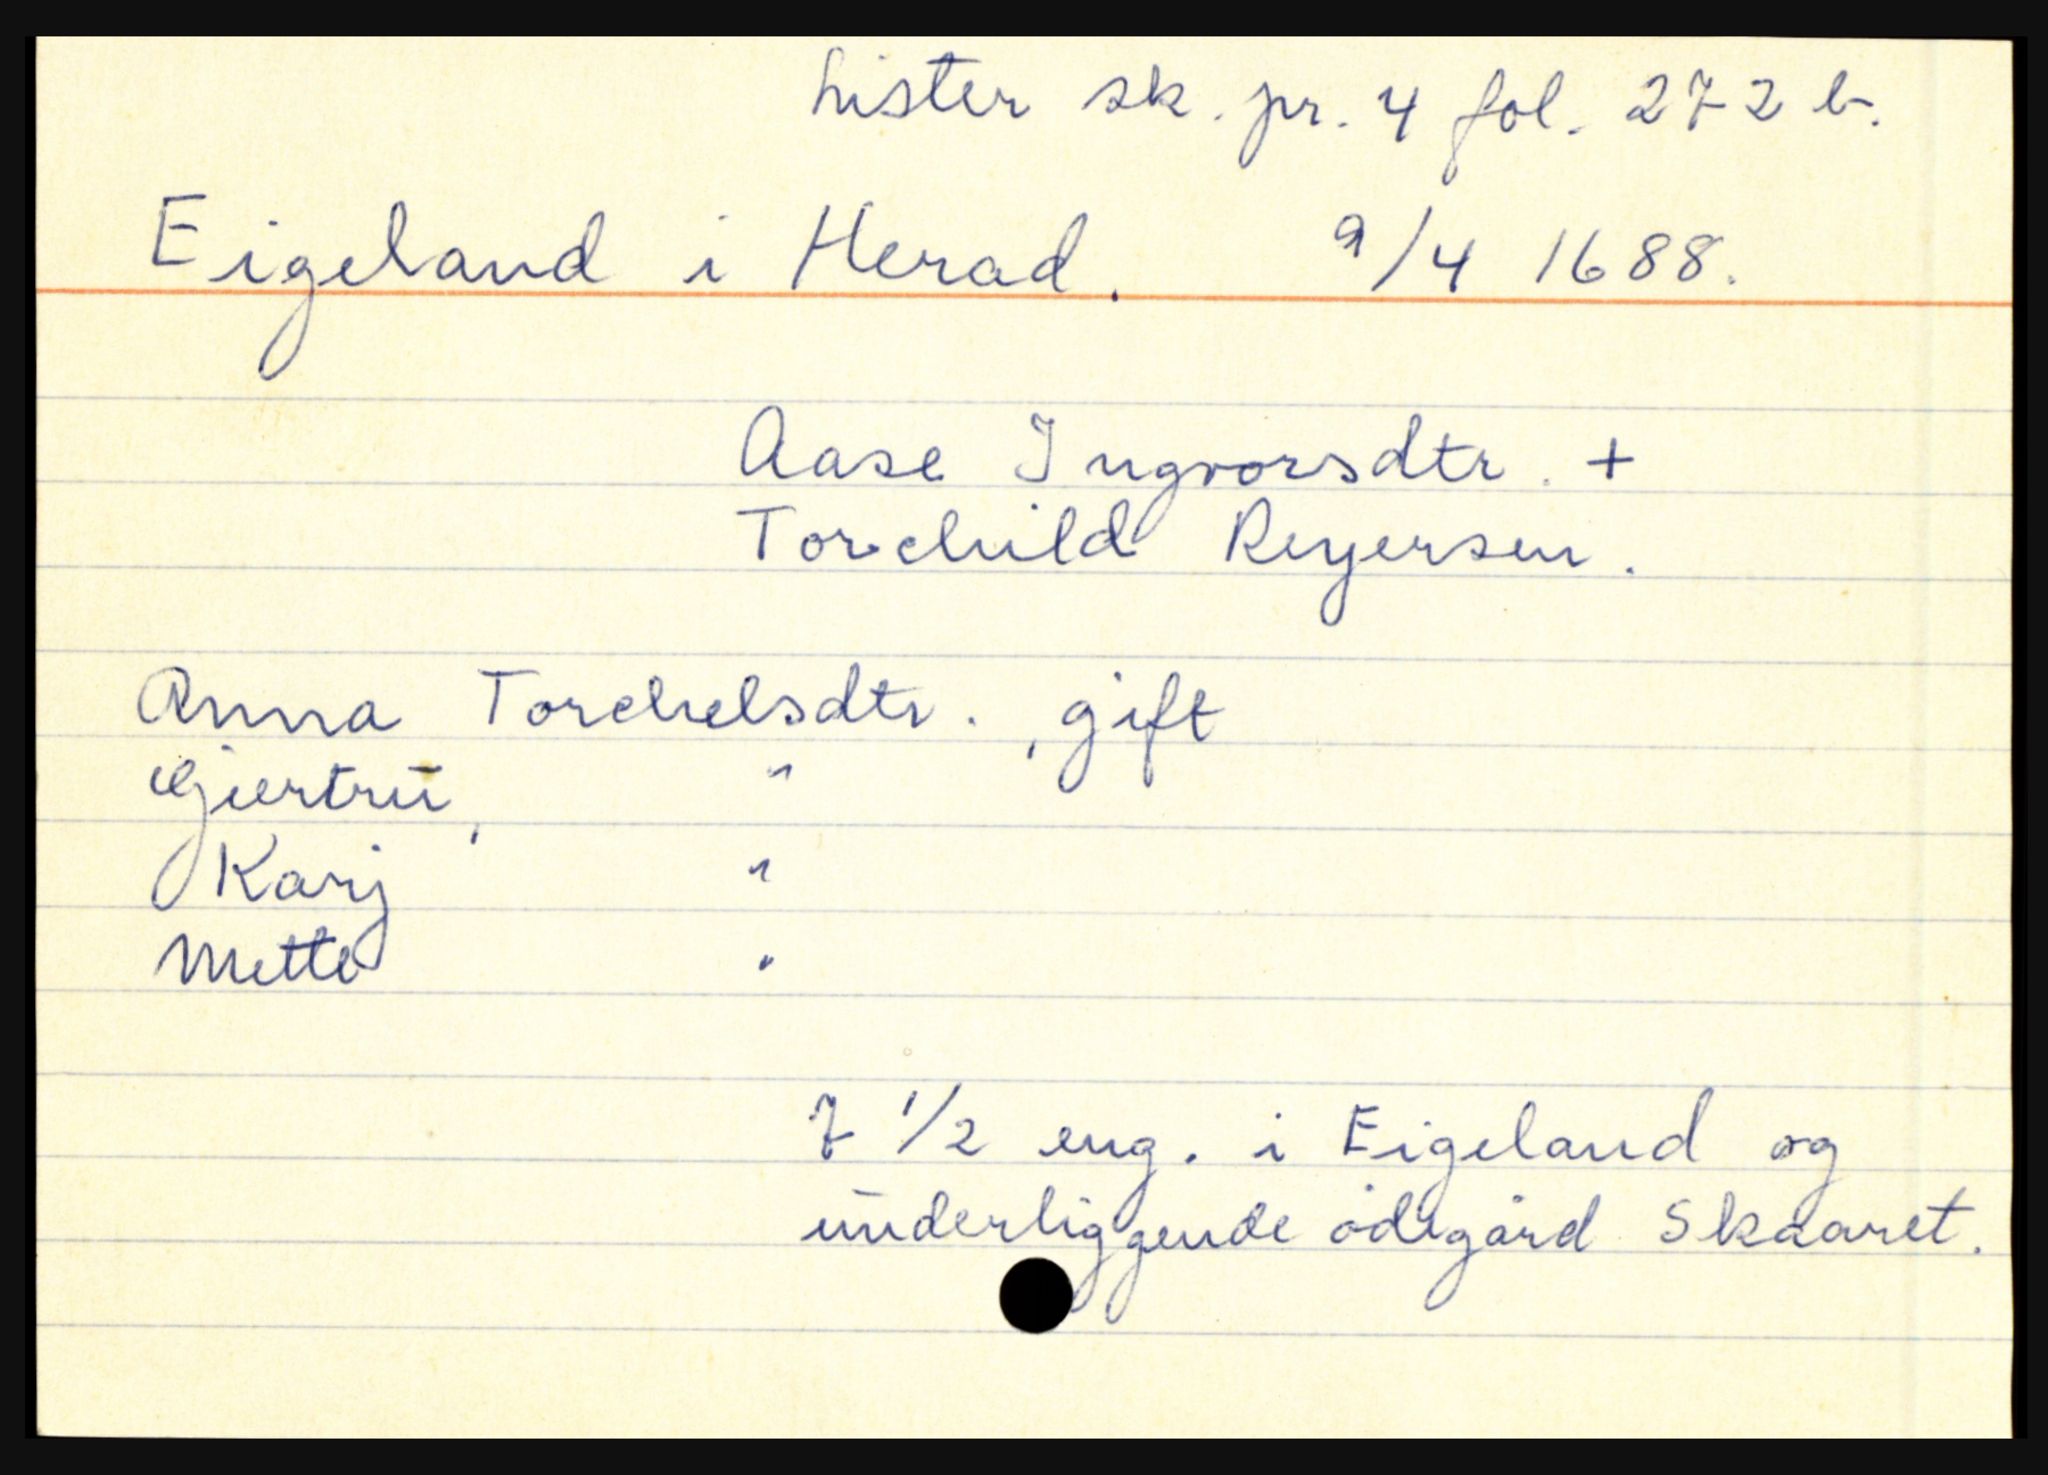 Lister sk. pr. 4 fol. 272 b.
Eigeland i Herad. 9/4 1688.
Aase Ingvorsdtr. +
Torchild Reyersen.
Anna Torchelsdtr., gift
Giertru, "
Karj "
Mette "
7 1/2 eng. i Eigeland og
underliggende ödegård Skaaret.